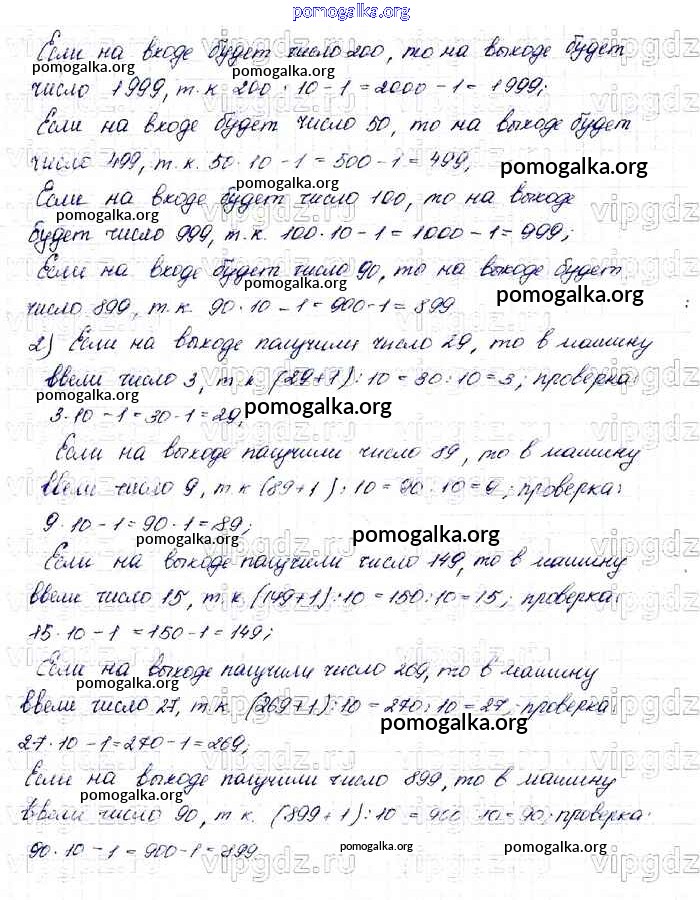 pomogalka.org
Если на входе будет число 200, то на выходе будет
число 1999, т.к 200 · 10 - 1 = 2000 - 1 = 1999;
Если на входе будет число 50, то на выходе будет
число 499, т.к. 50 · 10 - 1 = 500 - 1 = 499;
Если на входе будет число 100, то на выходе
будет число 999, т.к. 100 · 10 - 1 = 1000 - 1 = 999;
Если на входе будет число 90, то на выходе будет
число 899, т.к. 90 · 10 - 1 = 900 - 1 = 899
2) Если на выходе получили число 29, то в машину
ввели число 3, т.к (29+1) : 10 = 30 : 10 = 3; проверка:
3 · 10 - 1 = 30 - 1 = 29;
Если на выходе получили число 89, то в машину
ввели число 9, т.к (89+1) : 10 = 90 : 10 = 9; проверка:
9 · 10 - 1 = 90 - 1 = 89;
Если на выходе получили число 149, то в машину
ввели число 15, т.к (149+1) : 10 = 150 : 10 = 15; проверка:
15 · 10 - 1 = 150 - 1 = 149;
Если на выходе получили число 269, то в машину
ввели число 27, т.к (269+1) : 10 = 270 : 10 = 27; проверка:
27 · 10 - 1 = 270 - 1 = 269;
Если на выходе получили число 899, то в машину
ввели число 90, т к (899+1) : 10 = 900 : 10 = 90; проверка:
90 · 10 - 1 = 900 - 1 = 899